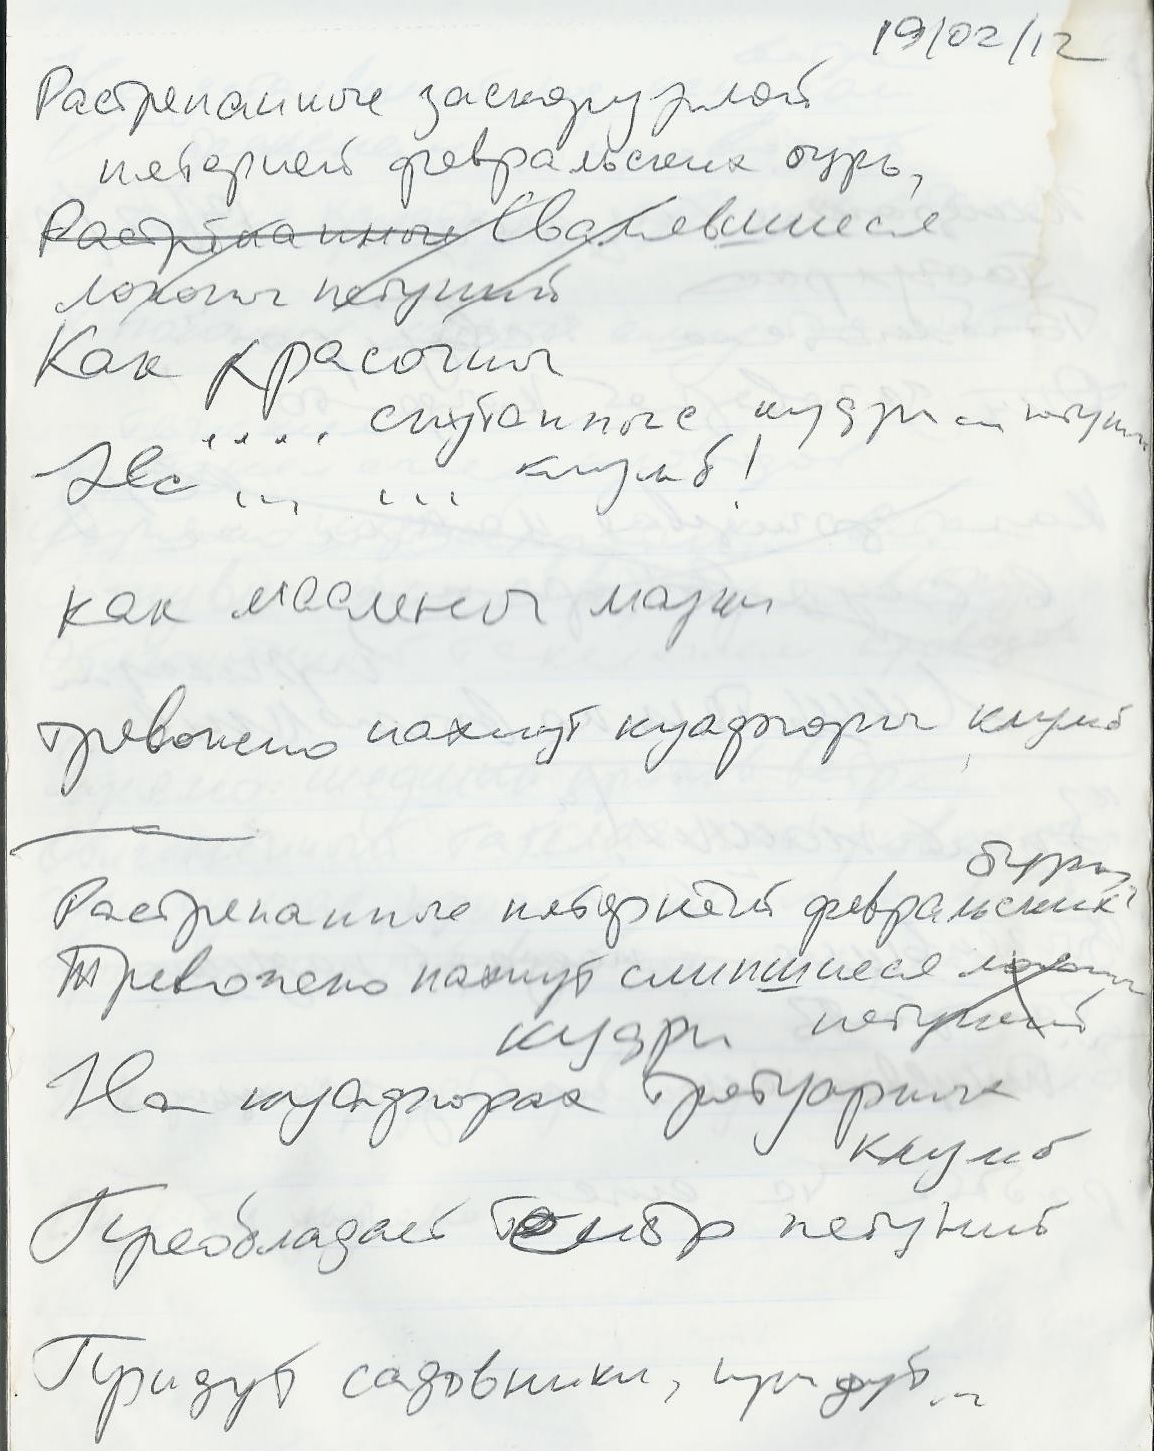 19/02/12
Растрепанные заскорузлой
пятерней февральских бурь,
Растрёпанные Свалявшиеся
локоны петуний
Как красочны
.... спутанные кудри петуний
На ... ... клумб!
как масленый мазки
тревожно пахнут квадраты клумб
бурь
Растрепанные пятерней февральских
Тревожно пахнут слипшиеся локоны
кудри петуний
На квадратах тротуарных
клумб
Преобладает тембр петуний
Придут садовники, придут...